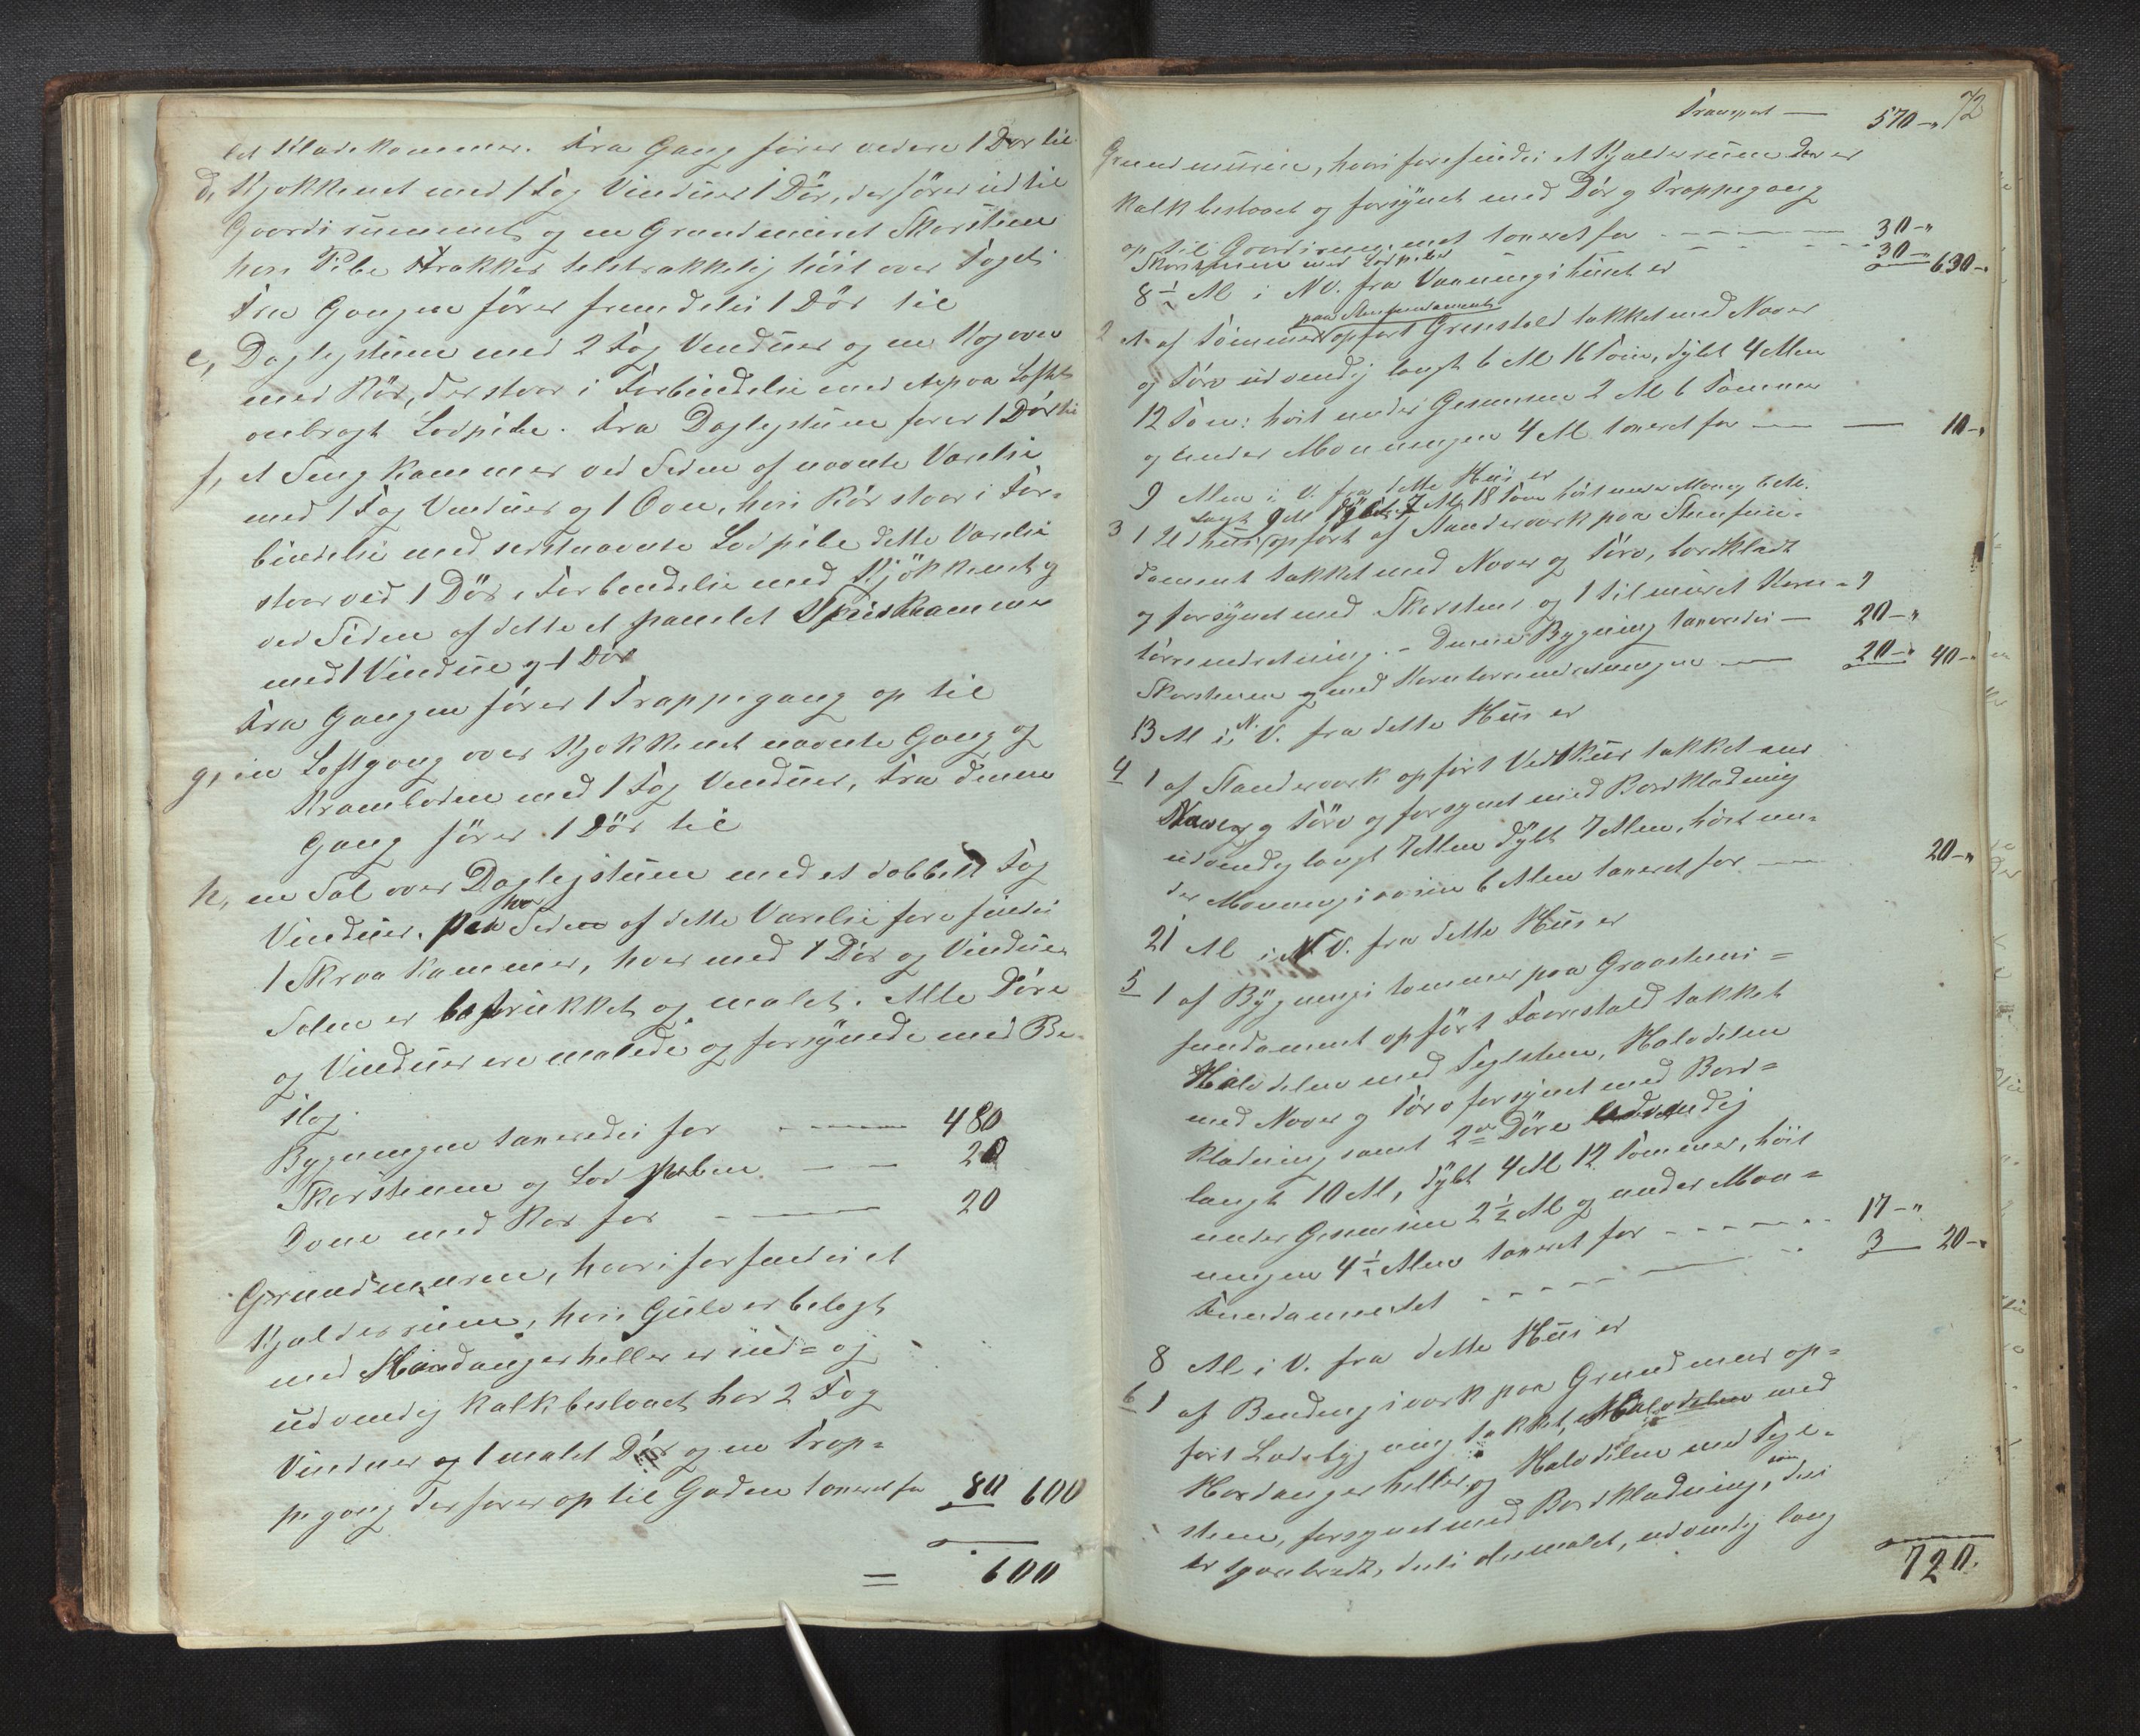 let Kladekammer. Fra Gang fører videre 1 Dør til
d, Kjøkkenet med 1 Fag Vinduer 1 Dör, der fører ud til
Goardsrummet og en Grundmuret Skorsten
hvis Pibe strækker tilstrækkelig höit over Taget
Fra Gangen förer fremdeles 1 Dör til
e, Dagligstuen med 2 Fag Vinduer og en Kogovn
med Rör, der staar i Forbindelse med en paa Loftet
anbragt Lodpibe. Fra Dagligstuen fører 1 Dör til
f, et Sengkammer ved Siden af nævnte Værelse
med 1 Fag Vinduer og 1 Ovn, hvis Rör staar i For-
bindelse med sidstnævnte Lodpibe dette Værelse
staar ved 1 Dör i Forbindelse med Kjökkenet og
ved Siden af dette et panelet Spiskammer
med 1 Vindue og 1 Dör
Fra Gangen förer 1 Trappegang op til
g, en Loftgang over Kjøkkenet nævnte Gang og
Kramboden med 1 Fag Vinduer, Fra denne
Gang förer 1 Dör til
h, en Sal over Dagligstuen med et dobbelt Fag
Vinduer. paa hver Side af dette Værelse forefindes
1 Skraakammer, hver med 1 Dör og Vindue
Salen er betrukket og malet. Alle Döre
og Vinduer ere malede og forsÿnede med Be-
slag.
Bygningen taxeredes for 480
Skorstenen og Lodpiben 20
Ovne med Rör for 20
Grundmuren, hvori forefindes et
Kjælderrum, hvis Gulv er belagt
med Hardangerheller er ind= og
udvendig kalkbeslaaet har 2 Fag
Vinduer og 1 malet Dör og en Trap=
pegang der förer op til Gaden taxeret for 80 600
= 600
72
Transport — 570-"
Grundmuren, hvori forefindes et Kjælderrum der er
kalkbeslaaet og forsÿnet med Dör og Trappegang
op til Goardsrummet taxeret for 30-"
Skorstenen med Lodpibe 30-" 630-"
8½ Al i NV. fra Vaaningshuset er
paa Stenfundament
2 et af Tömmer opfört Grisestald tækket med Næver
og Törv udvendig langt 6 Al 16 Tom, dÿbt 4 Alen
12 Tom: höit under Gesimsen 2 Al 6 Tommer
og under Mønningen 4 Al taxeret for 10-"
9 Alen i V. fra dette Hus er
langt 9 Al dÿbt 7 Al 18 Tom höit under Møning 6 Al.
3 1 Ildhus opfört af Standerværk paa Stenfun-
dament tækket med Næver og Törv, bordklædt
og forsÿnet med Skorsten og 1 tilmuret Korn-
törreindretning. - Denne Bÿgning taxeredes — 20-"
Skorstenen og med Korntørreindretningen — 20-" 40-"
13 Al i N. V. fra dette Hus er
4 1 af Standerværk opfört Vedskur tækket med
Næver og Törv og forsynet med Bordklædning
udvendig langt 7 Alen dÿbt 7 Alen, höit un-
der Mønningsaasen 6 Alen taxeret for — 20-"
21 Al i N V. fra dette Hus er
5 1 af Bÿgningstømmer paa Graastens=
fundament opfört Faarestald tækket
Halvdelen med Teglsten, Halvdelen
med Næver og Törv forsÿnet med Bord=
klædning samt 2de Döre udvendig
langt 10 Al, dÿbt 4 Al 12 Tommer, höit
under Gesimsen 2½ Al og under Møn=
ningen 4½ Alen taxeret for 17-"
Fundamentet 3 20-"
8 Al i V. fra dette Hus er
6 1 af Bindingsværk paa Grundmur op=
fört Ladebygning tækket, Halvdelen med
Hardangerheller og Halvdelen med Tegl-
sten, forsynet med Bordklædning, som dels
er sponbredt, dels umalet, udvendig lang
720.